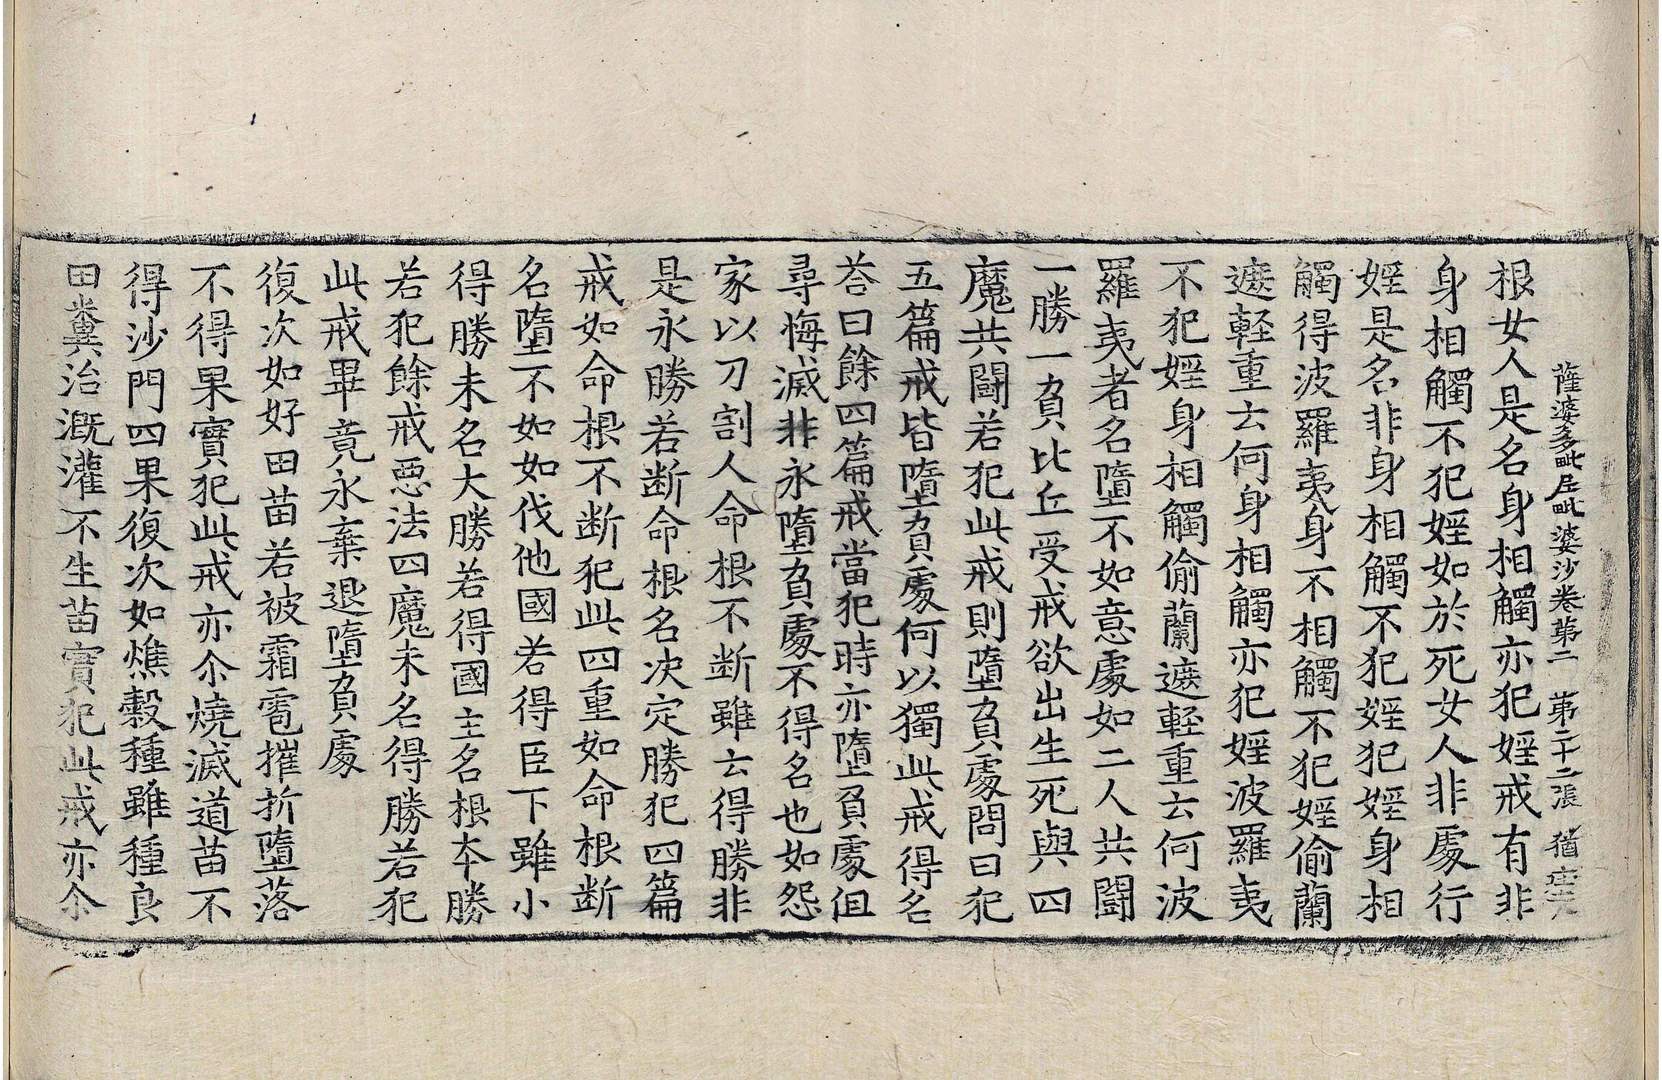 薩婆多毗尼毗婆沙卷第二 第二十二張 猶
根女人是名身相觸亦犯婬戒有非
身相觸不犯婬如於死女人非處行
婬是名非身相觸不犯婬犯婬身相
觸得波羅夷身不相觸不犯婬偷蘭
遮輕重云何身相觸亦犯婬波羅夷
不犯婬身相觸偷蘭遮輕重云何波
羅夷者名墮不如意處如二人共鬪
一勝一負比丘受戒欲出生死與四
魔共鬪若犯此戒則墮負處問曰犯
五篇戒皆墮負處何以獨此戒得名
荅曰餘四篇戒當犯時亦墮負處但
尋悔滅非永墮負處不得名也如怨
家以刀割人命根不断雖云得勝非
是永勝若断命根名决定勝犯四篇
戒如命根不断犯此四重如命根断
名墮不如如伐他國若得臣下雖小
得勝未名大勝若得國主名根本勝
若犯餘戒惡法四魔未名得勝若犯
此戒畢竟永棄退墮負處
復次如好田苗若被霜雹摧折墮落
不得果實犯此戒亦尒燒滅道苗不
得沙門四果復次如燋穀種雖種良
田糞治溉灌不生苗實犯此戒亦尒